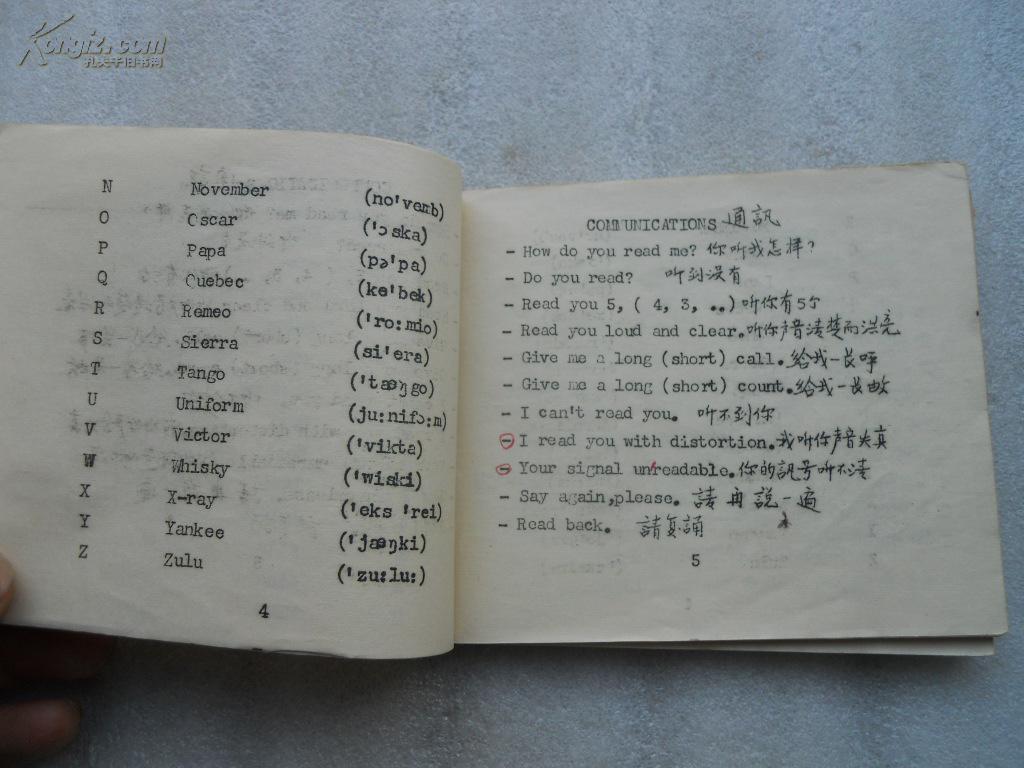 Kongfz.com
孔夫子旧书网
N November (no'vemb)
O Oscar ('ɔska)
P Papa (pə'pa)
Q Quebec (ke'bek)
R Romeo ('ro:mio)
S Sierra (si'era)
T Tango ('tæŋgo)
U Uniform (ju:nifɔ:m)
V Victor ('vikta)
W Whisky ('wiski)
X X-ray ('eks 'rei)
Y Yankee ('jæŋki)
Z Zulu ('zu:lu:)
4
COMMUNICATIONS 通訊
- How do you read me? 你听我怎样?
- Do you read? 听到没有
- Read you 5, ( 4, 3, ..) 听你有5个
- Read you loud and clear. 听你声音清楚而洪亮
- Give me a long (short) call. 给我一長呼
- Give me a long (short) count. 给我一長数
- I can't read you. 听不到你
- I read you with distortion. 我听你声音失真
- Your signal unreadable. 你的訊号听不清
- Say again,please. 請再説一遍
- Read back. 請复誦
5